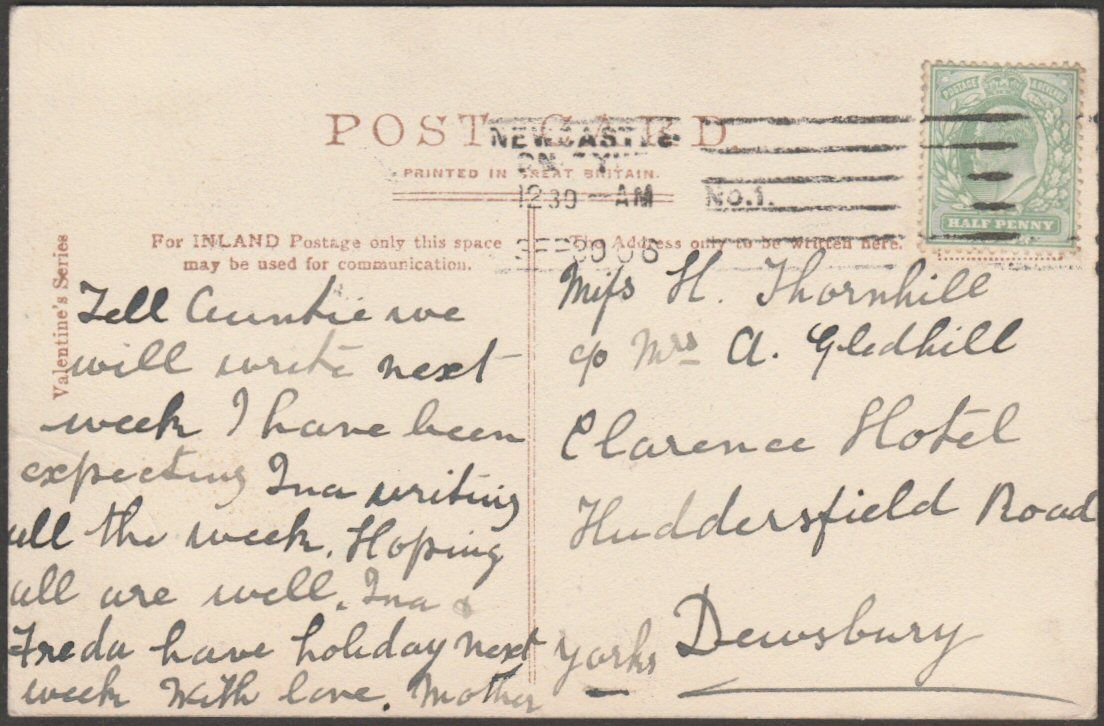 POST CARD.
PRINTED IN GREAT BRITAIN.
NEWCASTLE
ON TYNE
1230 - AM
No.1.
POSTAGE & REVENUE
HALF PENNY
For INLAND Postage only this space
may be used for communication.
The Address only to be written here.
Valentine's Series
Tell Auntie we
will write next
week I have been
expecting Ina writing
all the week. Hoping
all are well. Ina &
Freda have holiday next
week With love. Mother
Miſs H. Thornhill
c/o Mrs A. Gledhill
Clarence Hotel
Huddersfield Road
Dewsbury
Yorks